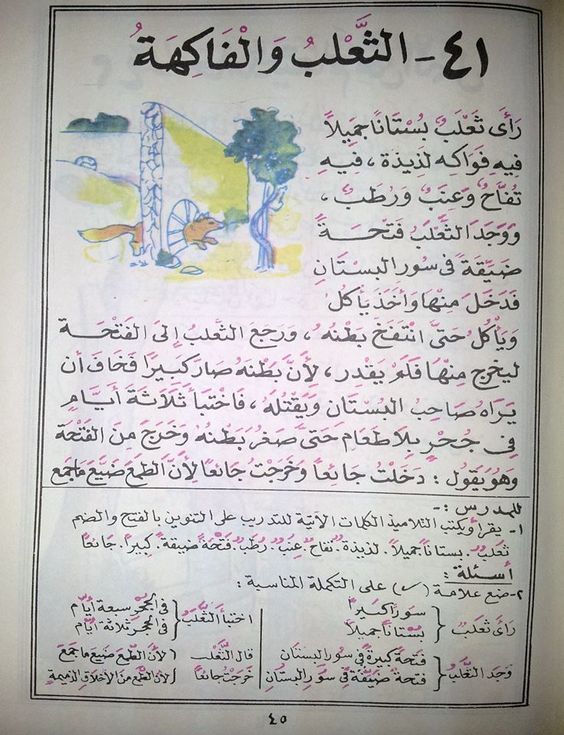 ٤١- الثَّعْلَبُ وَالْفَاكِهَةُ
رَأَى ثَعْلَبٌ بُسْتَانًا جَمِيلاً
فِيهِ فَوَاكِه لذِيذَة ، فِيهِ
تُفَّاحٌ وَعِنَبٌ وَرُطَبٌ ،
وَوَجَدَ الثَّعْلَبُ فَتْحَةً
ضَيِّقَةً فِي سُورِ البُسْتَانِ
فَدَخَلَ مِنْهَا وَأَخَذَ يَأْكُلُ
وَيَأْكُلُ حَتَّى انْتَفَخَ بَطْنُهُ ، وَرجَعَ الثَّعْلَبُ إِلَى الفَتْحَةِ
لِيَخْرُجَ مِنْهَا فَلَمْ يَقْدِر ، لأَنَّ بَطْنَهُ صَارَ كَبِيرًا فَخَافَ أَن
يَرَاهُ صَاحِبُ البُسْتَانِ وَيَقْتُلَهُ ، فَاخْتَبَأَ ثَلَاثَةَ أَيَّامٍ
فِي جُحْرٍ بِلاَ طَعَامٍ حَتَّى صَغُرَ بَطْنُهُ وَخَرَجَ مِنَ الفَتْحَةِ
وَهُوَ يَقُولُ : دَخَلْتُ جَائِعًا وَخَرَجْتُ جَائِعًا لأَنَّ الطَّمَعَ ضَيَّعَ مَا جَمَعَ
للمدرس :-
١- يقرأ ويكتب التلاميذ الكلمات الآتية للتدرب على التنوين بالفتح والضم
ثعلبٌ . بستاناً جميلاً . لذيذةٌ . تفاحٌ . عنبٌ . رطبٌ . فتحةً ضيقةً . كبيراً . جائعاً
أسئلة :
٢- ضع علامة (✓) على التكملة المناسبة :
رأى ثعلبٌ { سوراً كبيراً
بستاناً جميلاً
اختبأ الثعلبُ { فى الجحر سبعة أيام
فى الجحر ثلاثة أيام
وجد الثعلبُ { فتحة كبيرة فى سور البستان
فتحة ضيقة فى سور البستان
قال الثعلب
خرجتُ جائعاً { لأن الطمع ضيع ما جمع
لأن الطمع من الأخلاق الذميمة
٤٥